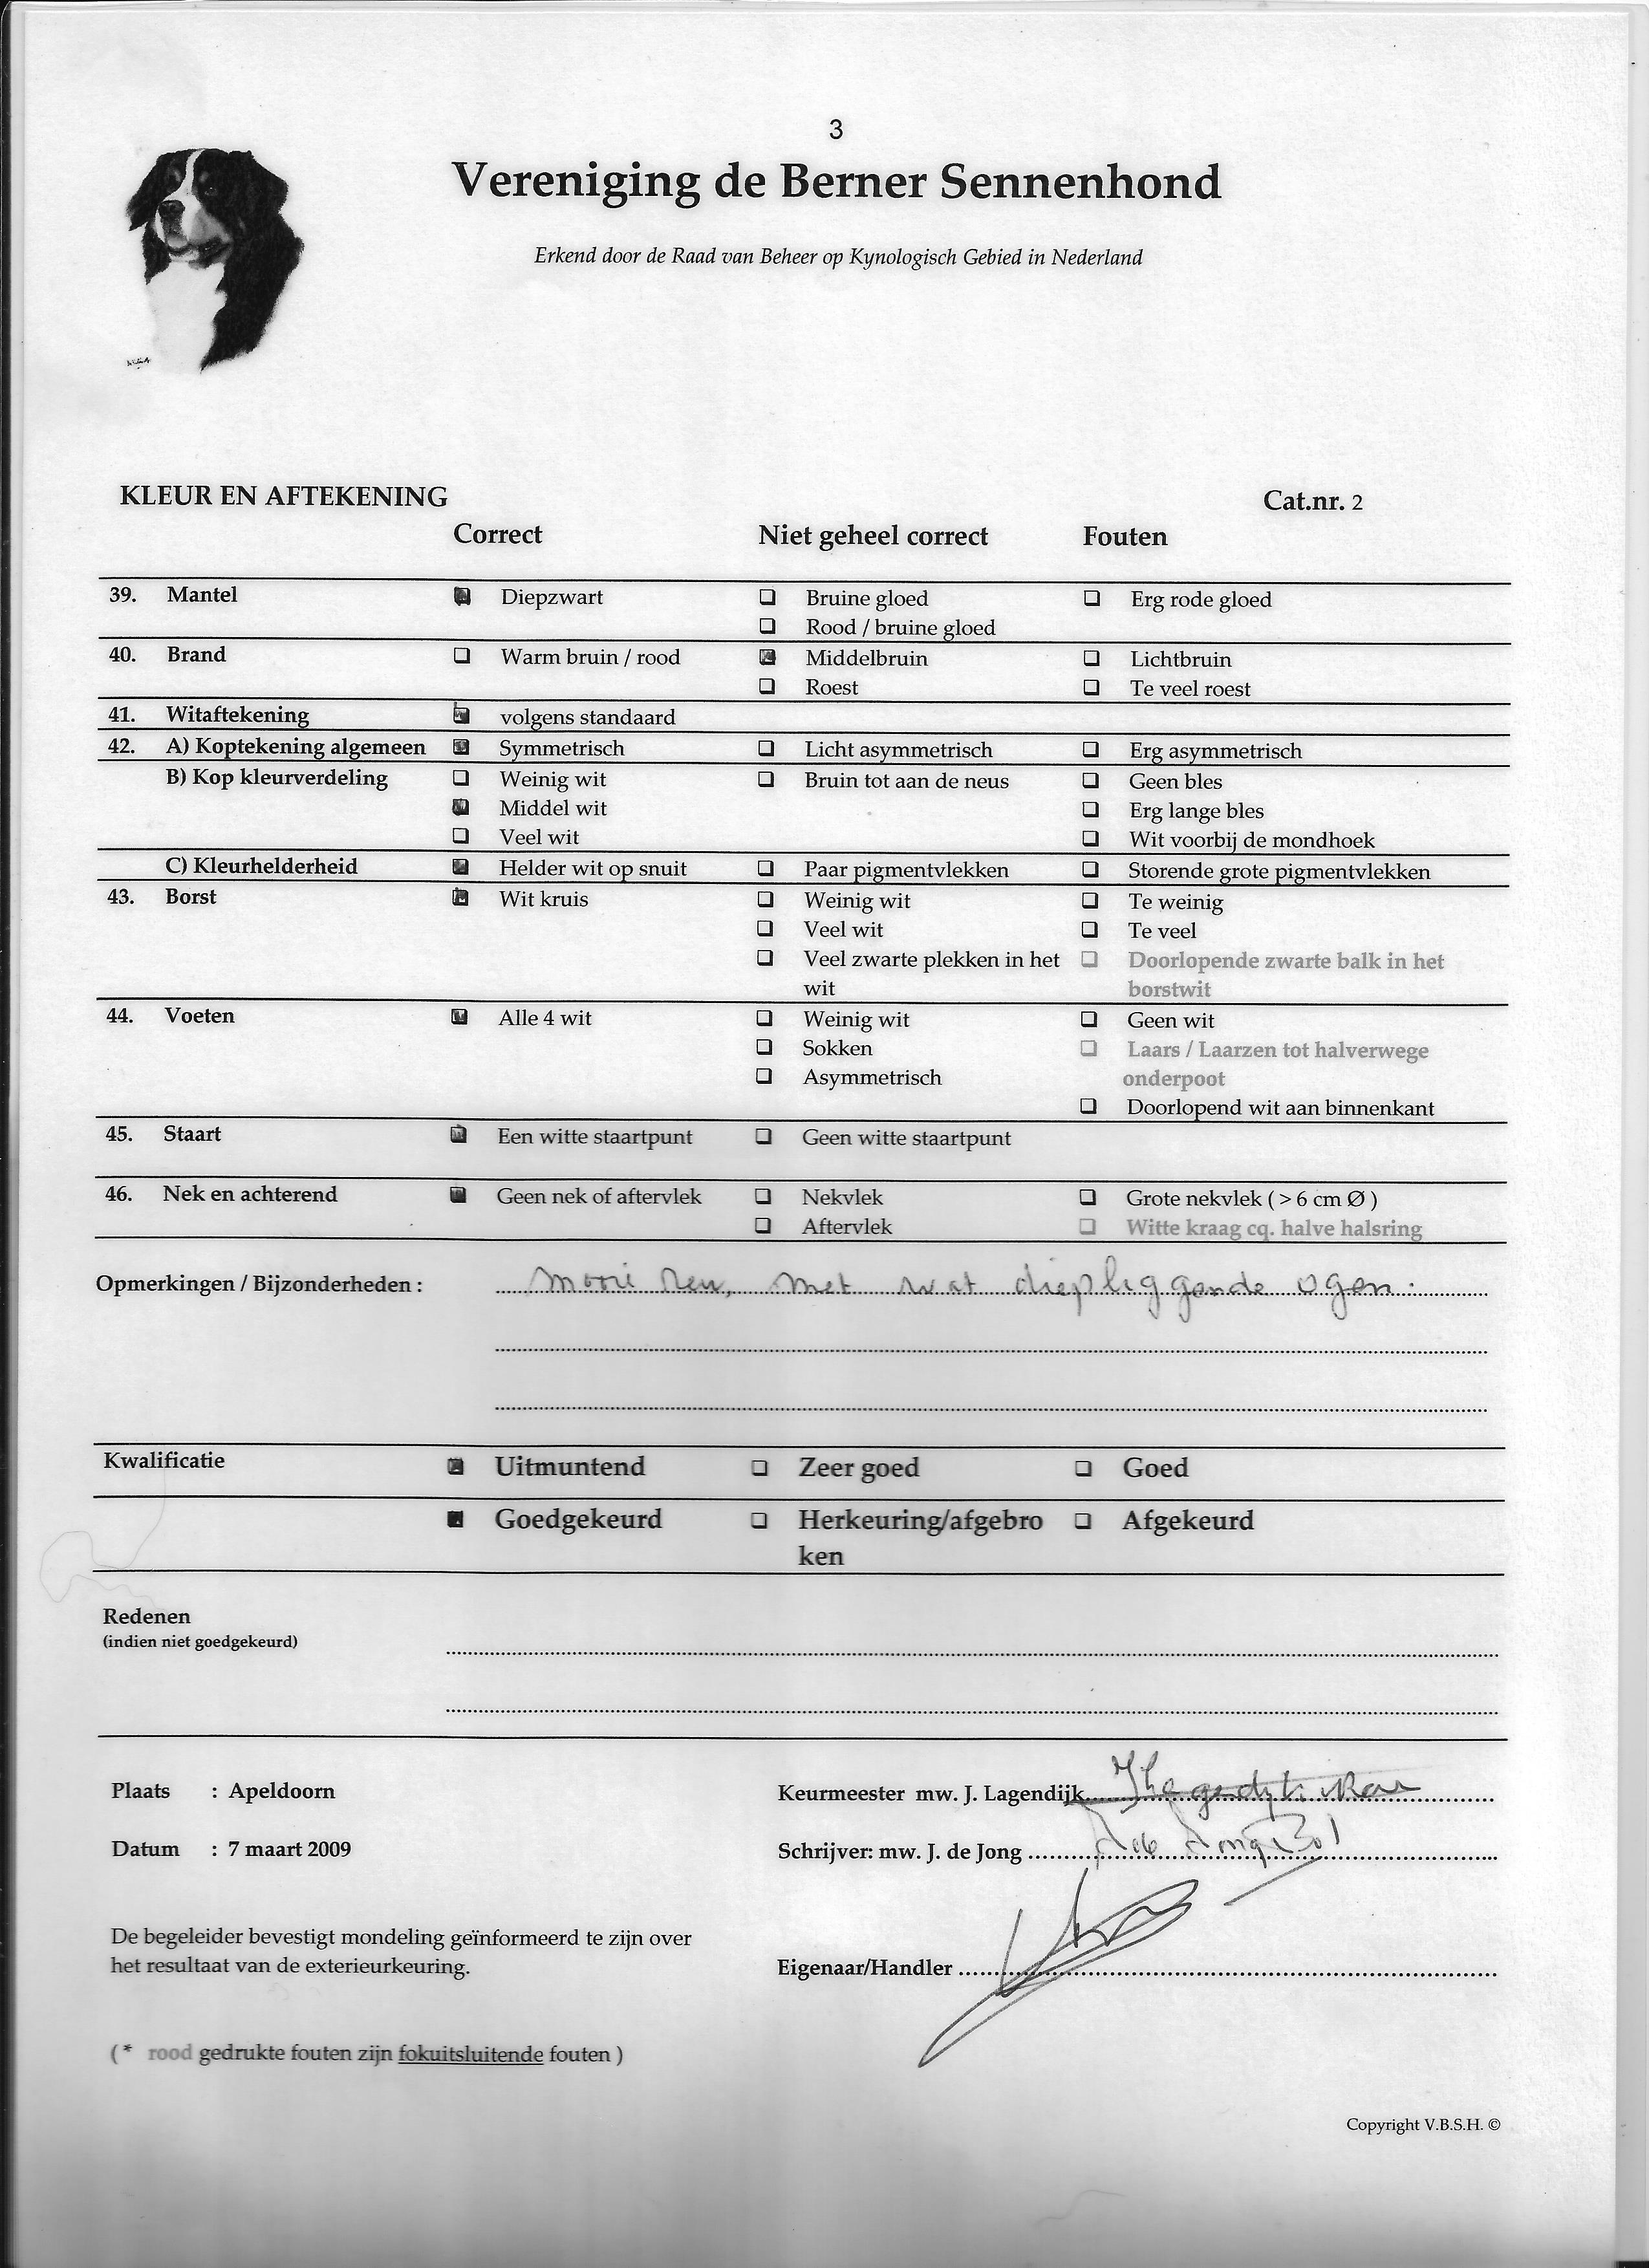 3
Vereniging de Berner Sennenhond
Erkend door de Raad van Beheer op Kynologisch Gebied in Nederland
KLEUR EN AFTEKENING
Cat.nr. 2
Correct Niet geheel correct Fouten
39. Mantel Diepzwart Bruine gloed Erg rode gloed
Rood / bruine gloed
40. Brand Warm bruin / rood Middelbruin Lichtbruin
Roest Te veel roest
41. Witaftekening volgens standaard
42. A) Koptekening algemeen Symmetrisch Licht asymmetrisch Erg asymmetrisch
B) Kop kleurverdeling Weinig wit Bruin tot aan de neus Geen bles
Middel wit Erg lange bles
Veel wit Wit voorbij de mondhoek
C) Kleurhelderheid Helder wit op snuit Paar pigmentvlekken Storende grote pigmentvlekken
43. Borst Wit kruis Weinig wit Te weinig
Veel wit Te veel
Veel zwarte plekken in het Doorlopende zwarte balk in het
wit borstwit
44. Voeten Alle 4 wit Weinig wit Geen wit
Sokken Laars / Laarzen tot halverwege
Asymmetrisch onderpoot
Doorlopend wit aan binnenkant
45. Staart Een witte staartpunt Geen witte staartpunt
46. Nek en achterend Geen nek of aftervlek Nekvlek Grote nekvlek ( > 6 cm Ø )
Aftervlek Witte kraag cq. halve halsring
Opmerkingen / Bijzonderheden : mooie reu, met wat diepliggende ogen.
Kwalificatie Uitmuntend Zeer goed Goed
Goedgekeurd Herkeuring/afgebro Afgekeurd
ken
Redenen
(indien niet goedgekeurd)
Plaats : Apeldoorn Keurmeester mw. J. Lagendijk
Datum : 7 maart 2009 Schrijver: mw. J. de Jong
De begeleider bevestigt mondeling geïnformeerd te zijn over
het resultaat van de exterieurkeuring. Eigenaar/Handler
( * rood gedrukte fouten zijn fokuitsluitende fouten )
Copyright V.B.S.H. ©